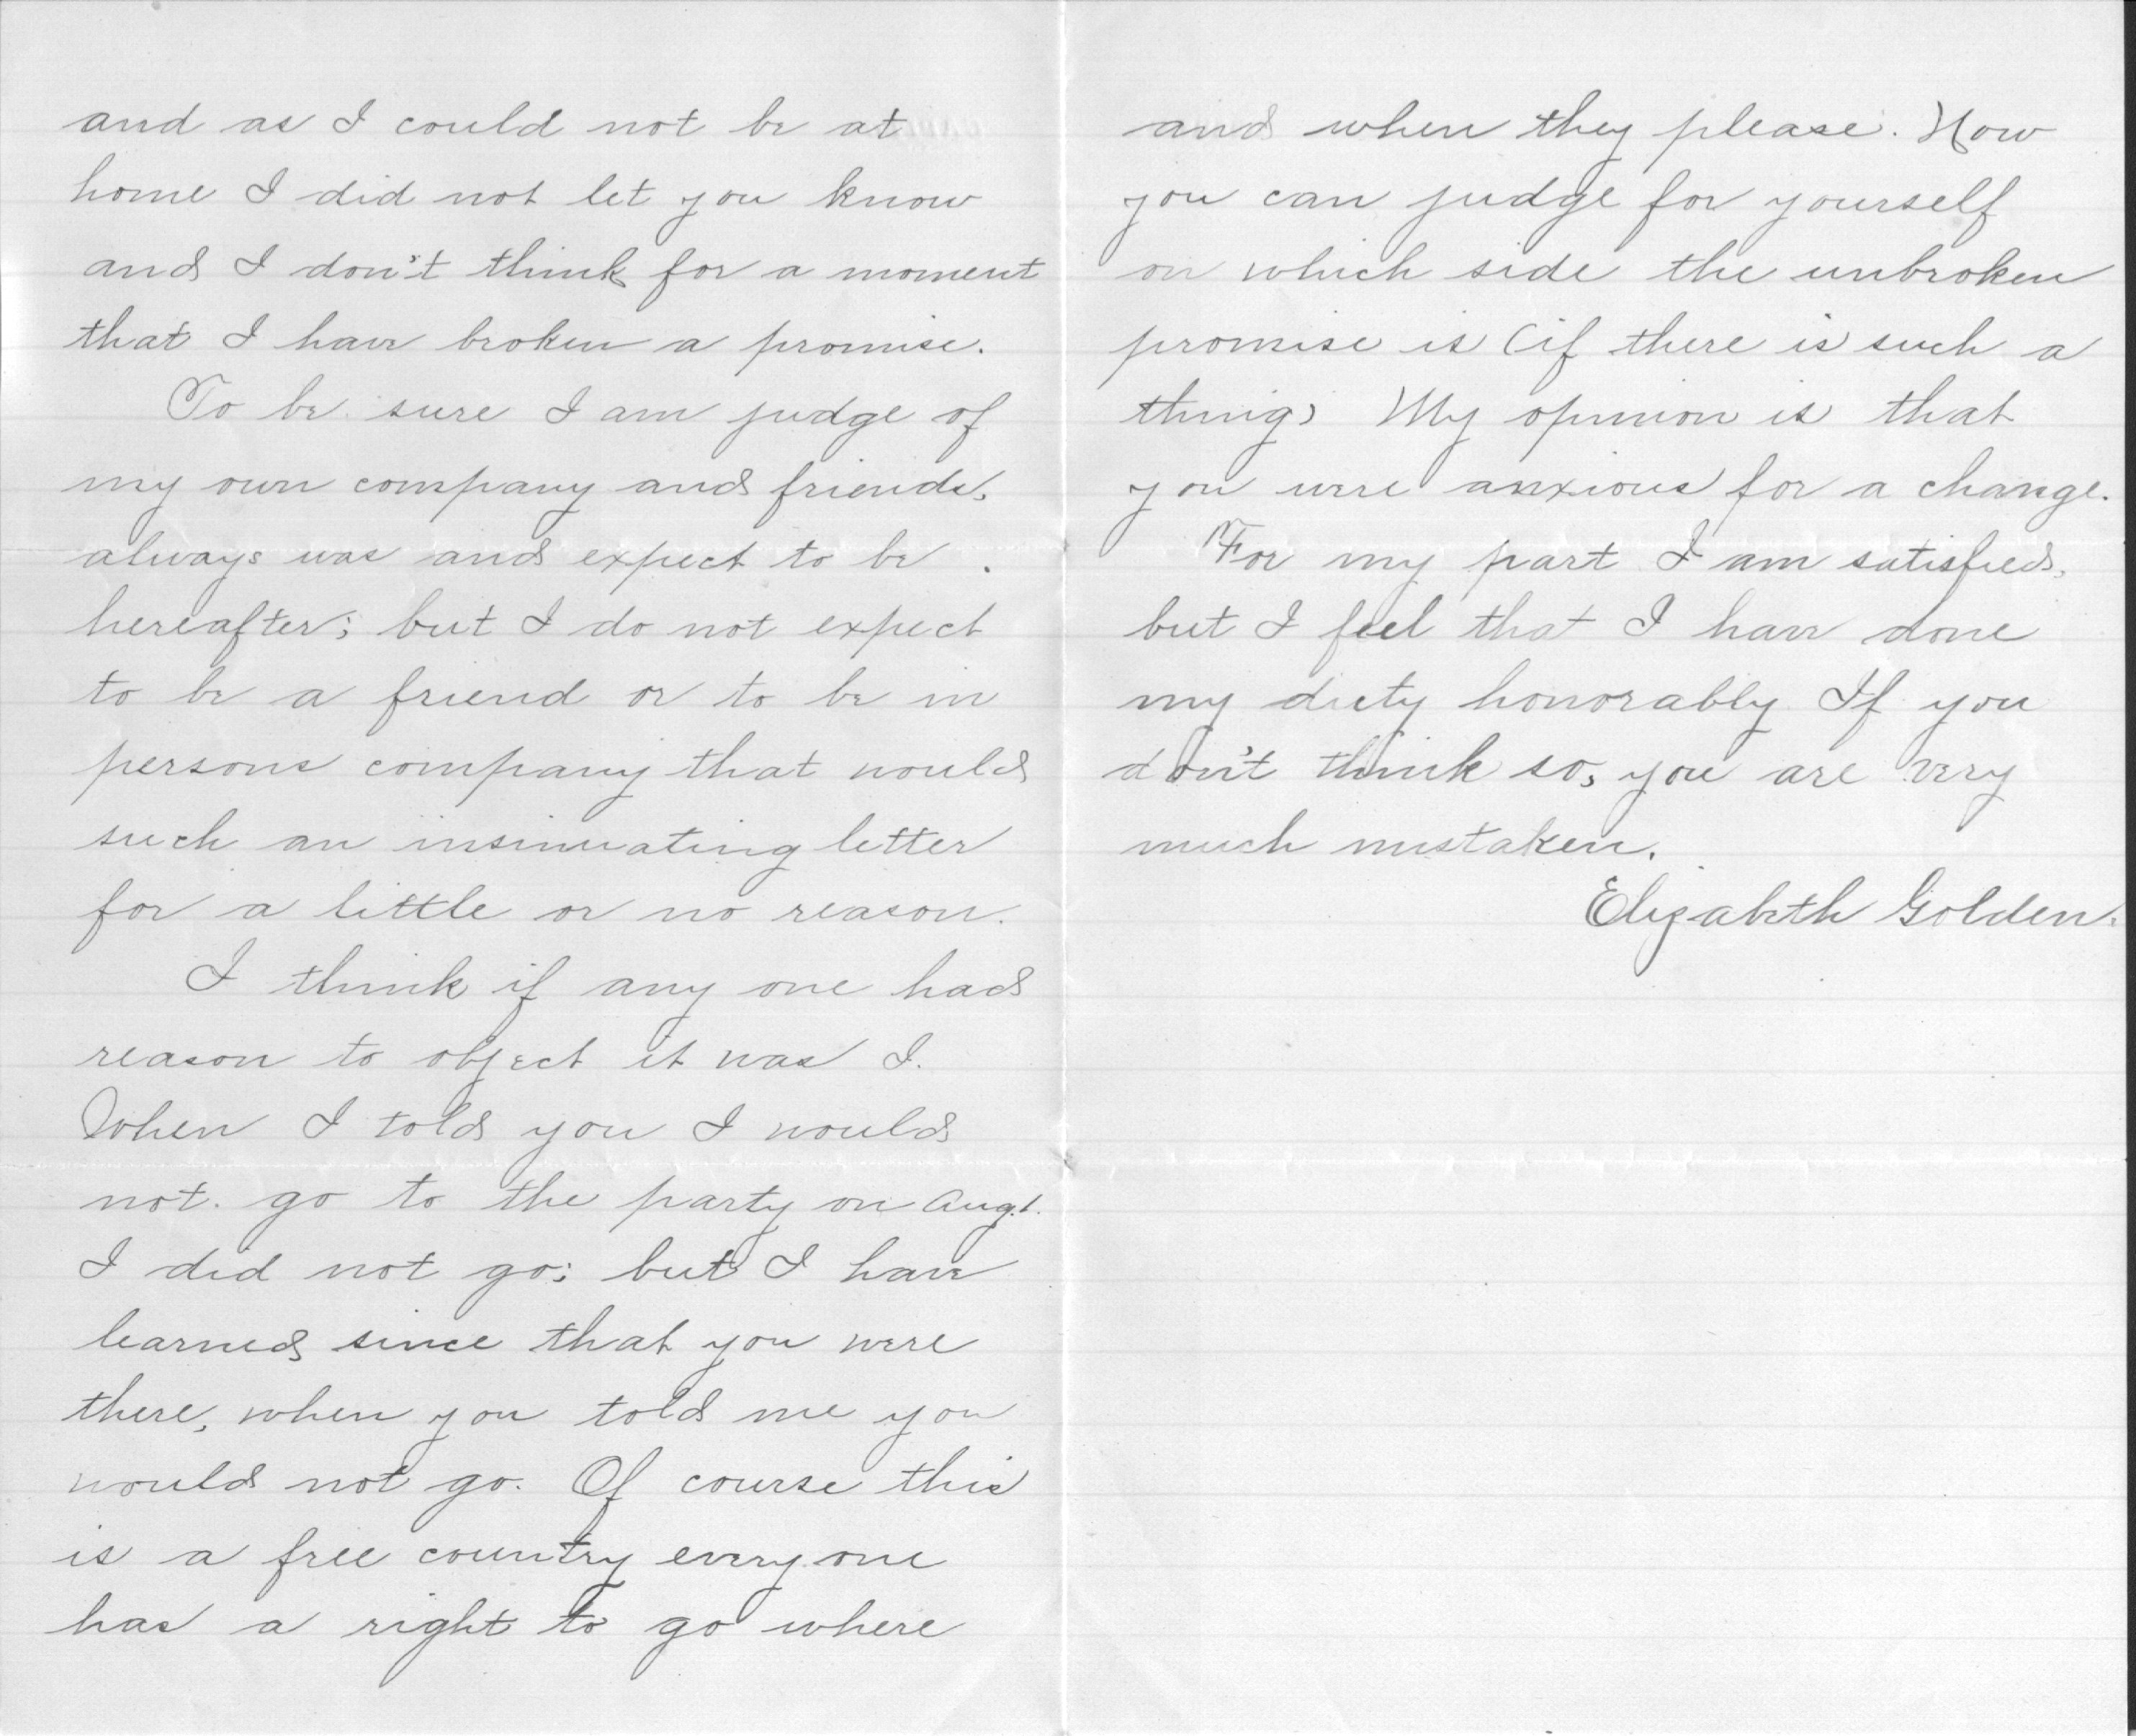 and as I could not be at
home I did not let you know
and I don't think for a moment
that I have broken a promise.
To be sure I am judge of
my own company and friends,
always was and expect to be
hereafter; but I do not expect
to be a friend or to be in
persons company that would
such an insinuating letter
for a little or no reason.
I think if any one had
reason to object it was I.
When I told you I would
not go to the party on Aug. 1.
I did not go; but I have
learned since that you were
there, when you told me you
would not go. Of course this
is a free country every one
has a right to go where
and when they please. Now
you can judge for yourself
on which side the unbroken
promise is (if there is such a
thing) My opinion is that
you were anxious for a change.
For my part I am satisfied,
but I feel that I have done
my duty honorably If you
don't think so, you are very
much mistaken.
Elizabeth Golden.